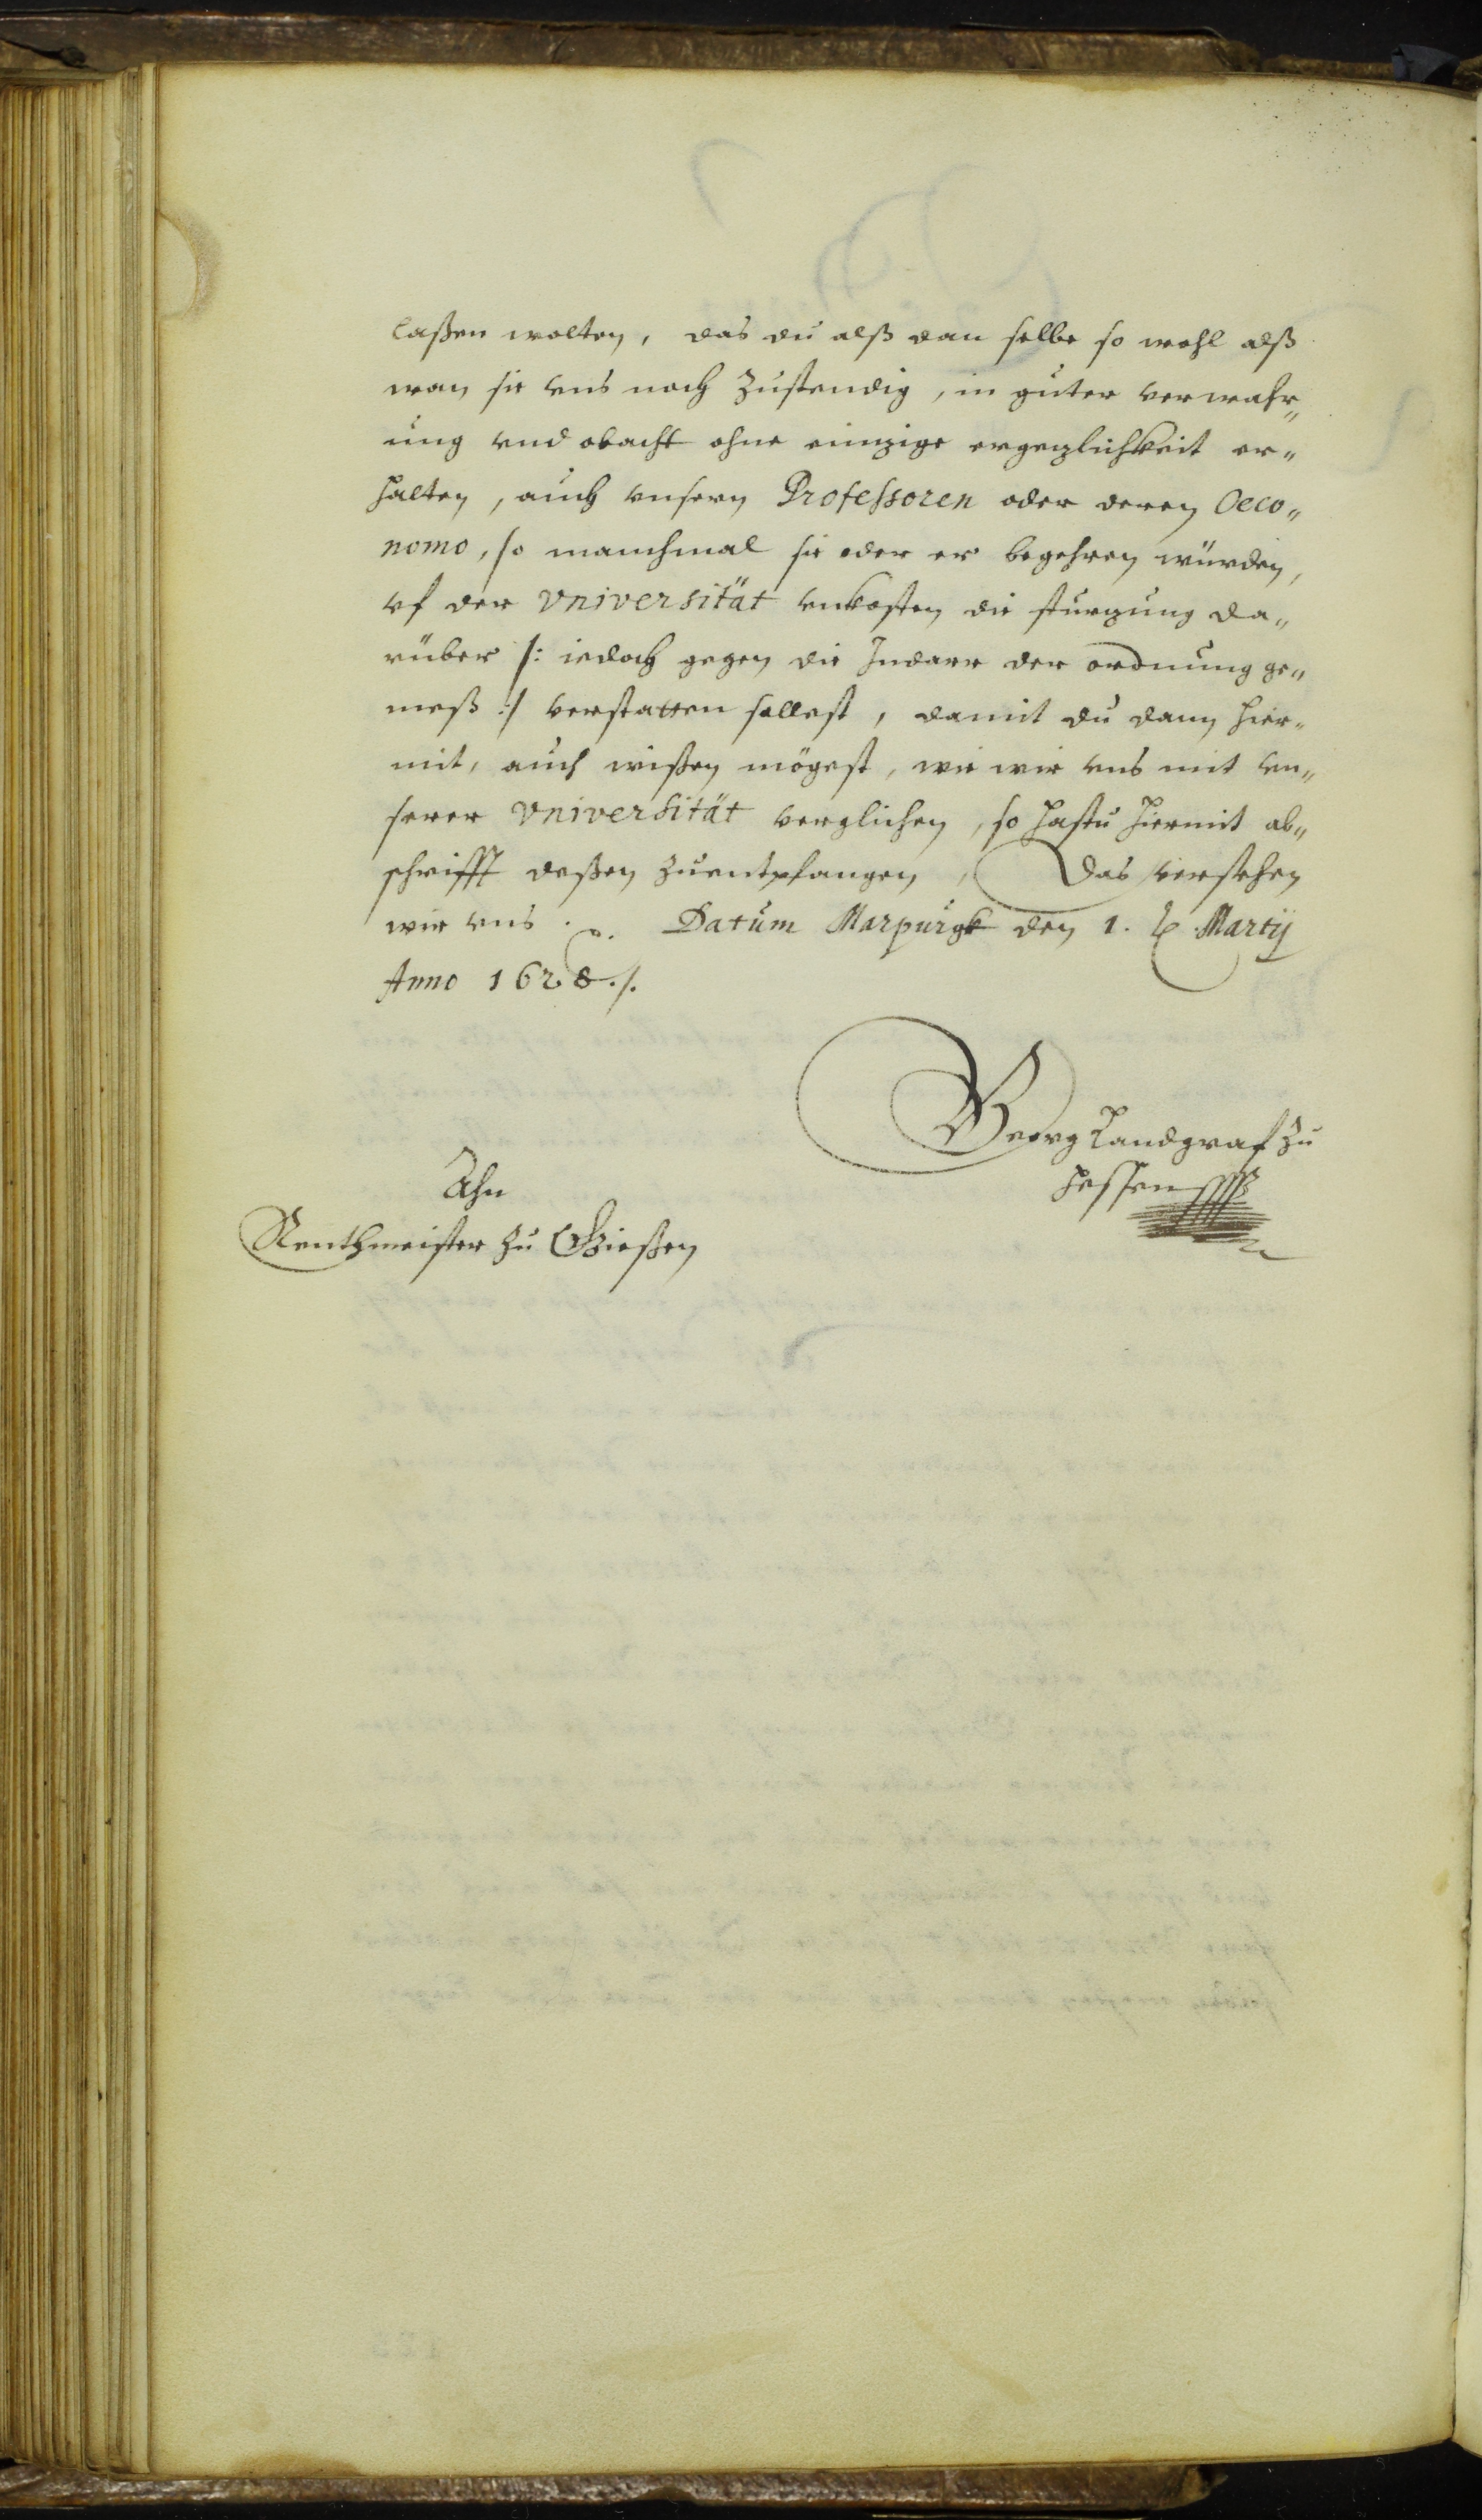 laßen wolten, das du alß dan selbe so wohl alß
wan sie vns noch zustendig, in guter verwahr„
ung vnd obacht ohne einzige ergezlichkeit er„
halten, auch vnsern Professoren oder deren Oeco„
nomo, so manchmal sie oder er begehren würden,
vf der Vniversität vnkosten die sturzung da„
rüber /: iedoch gegen die der ordnung ge„
meß :/ verstatten sollest, damit du dann hier„
mit, auch wißen mögest, wie wir vns mit vn„
serer Vniversität verglichen, so hastu hiermit ab„
schrifft deßen zuentpfangen, Das versehen
wir vns. Datum Marpurgk den 1. Martij
Anno 1628./.
Georg Landgraf zu
Hessen
Ahn
Renthmeister zu Gießen